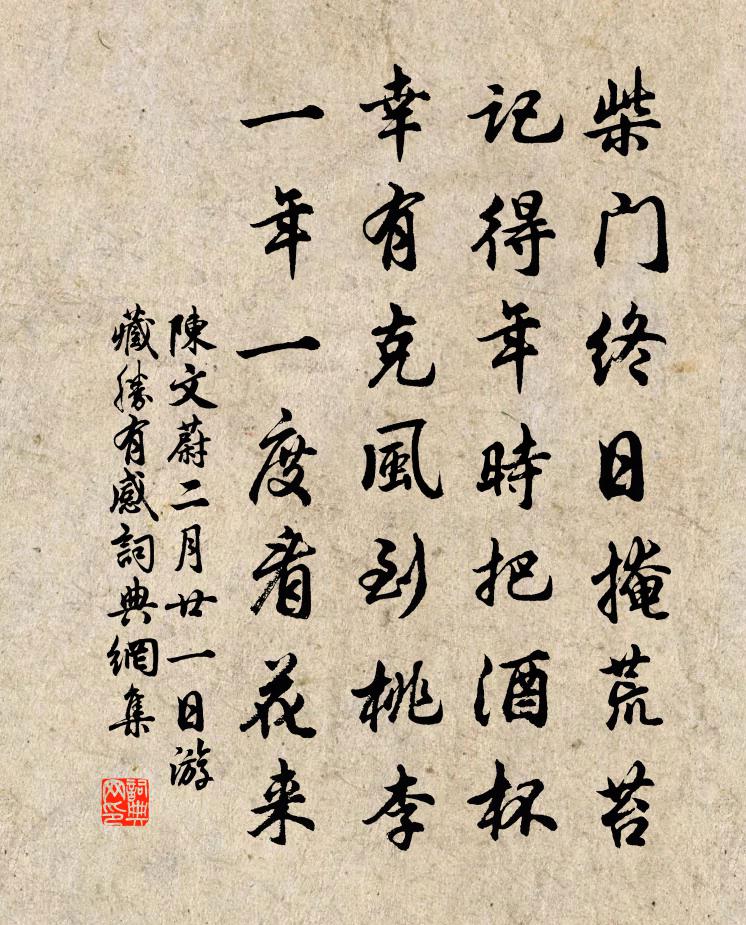 柴门终日掩荒苔
记得年時把酒杯
幸有克風到桃李
一年一度看花来
陳文蔚二月廿一日游
藏勝有感詞典網集
詞典網印